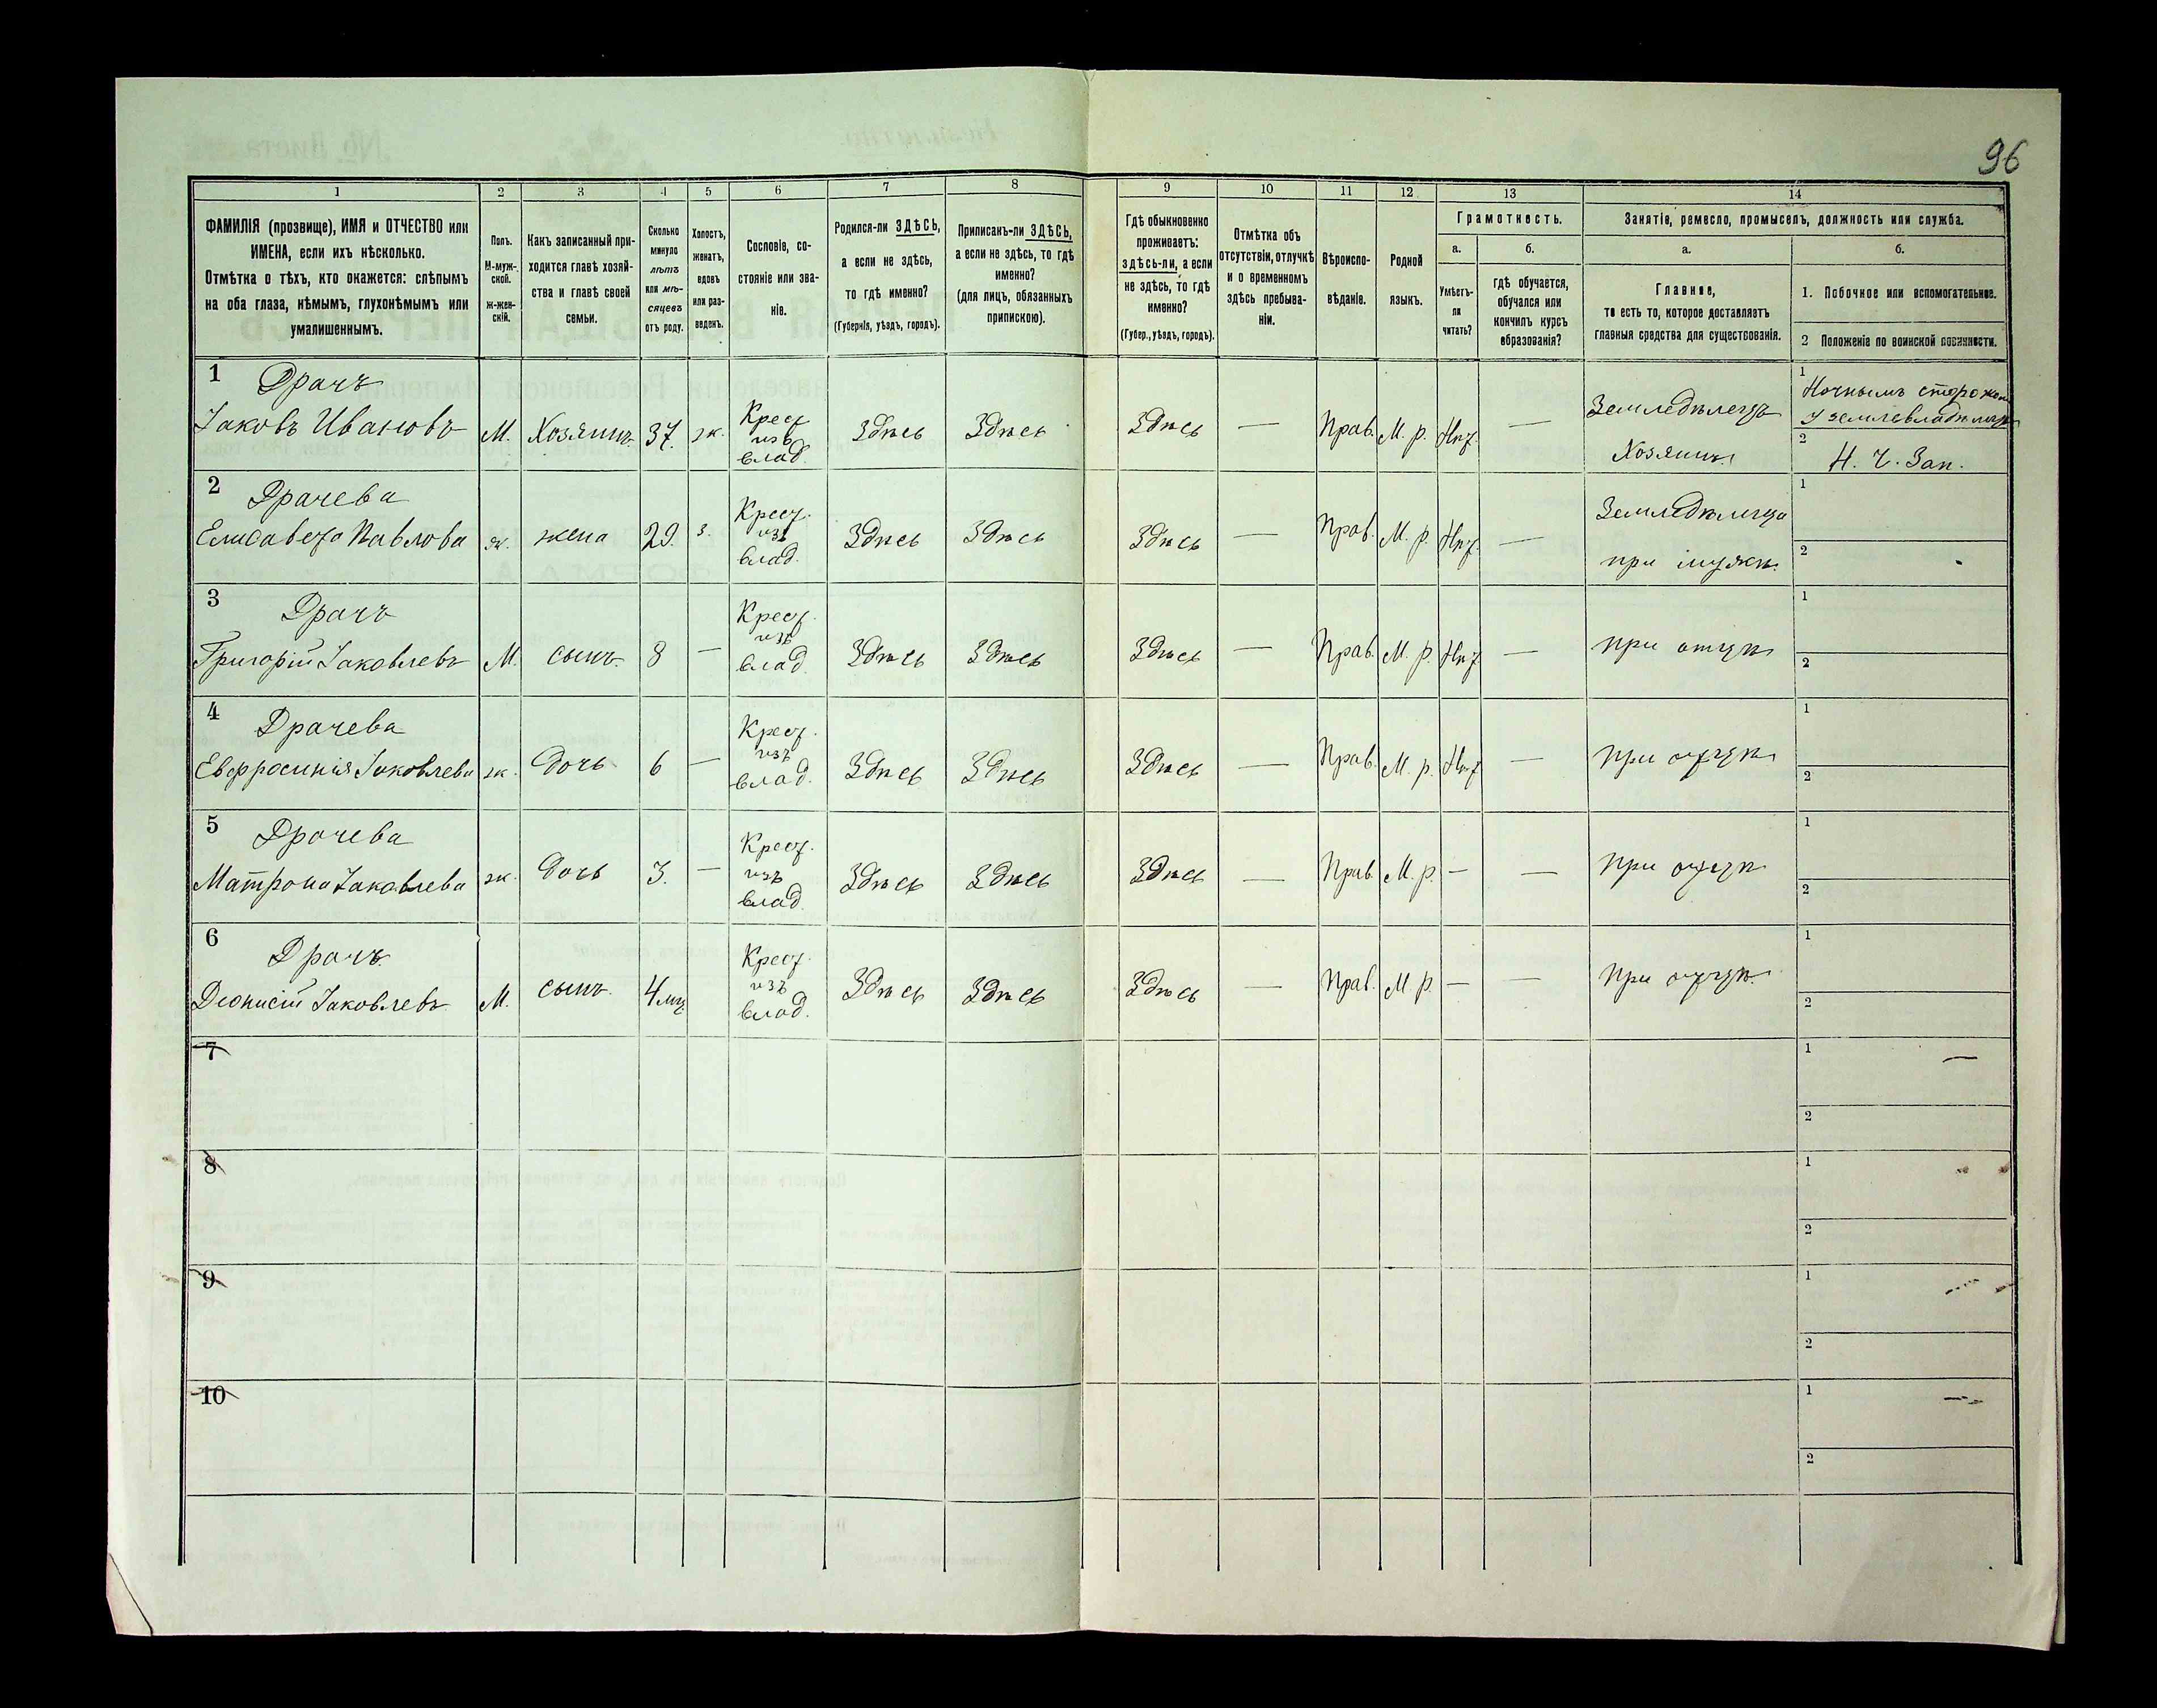 96
1 2 3 4 5 6 7 8 9 10 11 12 13 14
ФАМИЛІЯ (прозвище), ИМЯ и ОТЧЕСТВО или
ИМЕНА, если ихъ нѣсколько.
Отмѣтка о тѣхъ, кто окажется: слѣпымъ
на оба глаза, нѣмымъ, глухонѣмымъ или
умалишеннымъ.
Полъ.
М-муж-
ской.
ж-жен-
скій.
Какъ записанный при-
ходится главѣ хозяй-
ства и главѣ своей
семьи.
Сколько
минуло
лѣтъ
или мѣ-
сяцевъ
отъ роду.
Холостъ,
женатъ,
вдовъ
или раз-
веденъ.
Сословіе, со-
стояніе или зва-
ніе.
Родился-ли ЗДѢСЬ,
а если не здѣсь,
то гдѣ именно?
(Губернія, уѣздъ, городъ).
Приписанъ-ли ЗДѢСЬ,
а если не здѣсь, то гдѣ
именно?
(для лицъ, обязанныхъ
припискою).
Гдѣ обыкновенно
проживаетъ:
здѣсь-ли, а если
не здѣсь, то гдѣ
именно?
(Губер., уѣздъ, городъ).
Отмѣтка объ
отсутствіи, отлучкѣ
и о временномъ
здѣсь пребыва-
ніи.
Вѣроиспо-
вѣданіе.
Родной
языкъ.
Грамотность.
а.
Умѣетъ-
ли
читать?
б.
гдѣ обучается,
обучался или
кончилъ курсъ
образованія?
Занятіе, ремесло, промыселъ, должность или служба.
а.
Главное,
то есть то, которое доставляетъ
главныя средства для существованія.
б.
1. Побочное или вспомогательное.
2 Положеніе по воинской повинности.
1 Драчъ
Іаковъ Ивановъ М. Хозяинъ 37. ж. Крест. изъ влад. Здѣсь Здѣсь Здѣсь — Прав. М. р. Нѣт — Земледѣлецъ Хозяинъ
1 Ночнымъ сторожем
у землевладѣльца
2 Н. Ч. Зап.
2 Драчева
Елисавета Павлова ж. жена 29. з. Крест. изъ влад. Здѣсь Здѣсь Здѣсь — Прав. М. р. Нѣт — Земледѣлица при мужѣ
1
2
3 Драчъ
Григорій Іаковлевъ М. сынъ. 8 — Крест. изъ влад Здѣсь Здѣсь Здѣсь — Прав. М. р. Нѣт — при отцѣ
1
2
4 Драчева
Евфросинія Іаковлева ж. дочь 6 — Крест. изъ влад. Здѣсь Здѣсь Здѣсь — Прав. М. р. Нѣт — при отцѣ
1
2
5 Драчева
Матрона Іаковлева ж. дочь 3. — Крест. изъ влад. Здѣсь Здѣсь Здѣсь — Прав. М. р. — — при отцѣ
1
2
6 Драчъ
Діонисій Іаковлевъ М. сынъ. 4 мц. Крест. изъ влад. Здѣсь Здѣсь Здѣсь — Прав. М. р. — — при отцѣ.
1
2
7
1 —
2
8
1
2
9
1
2
10
1
2